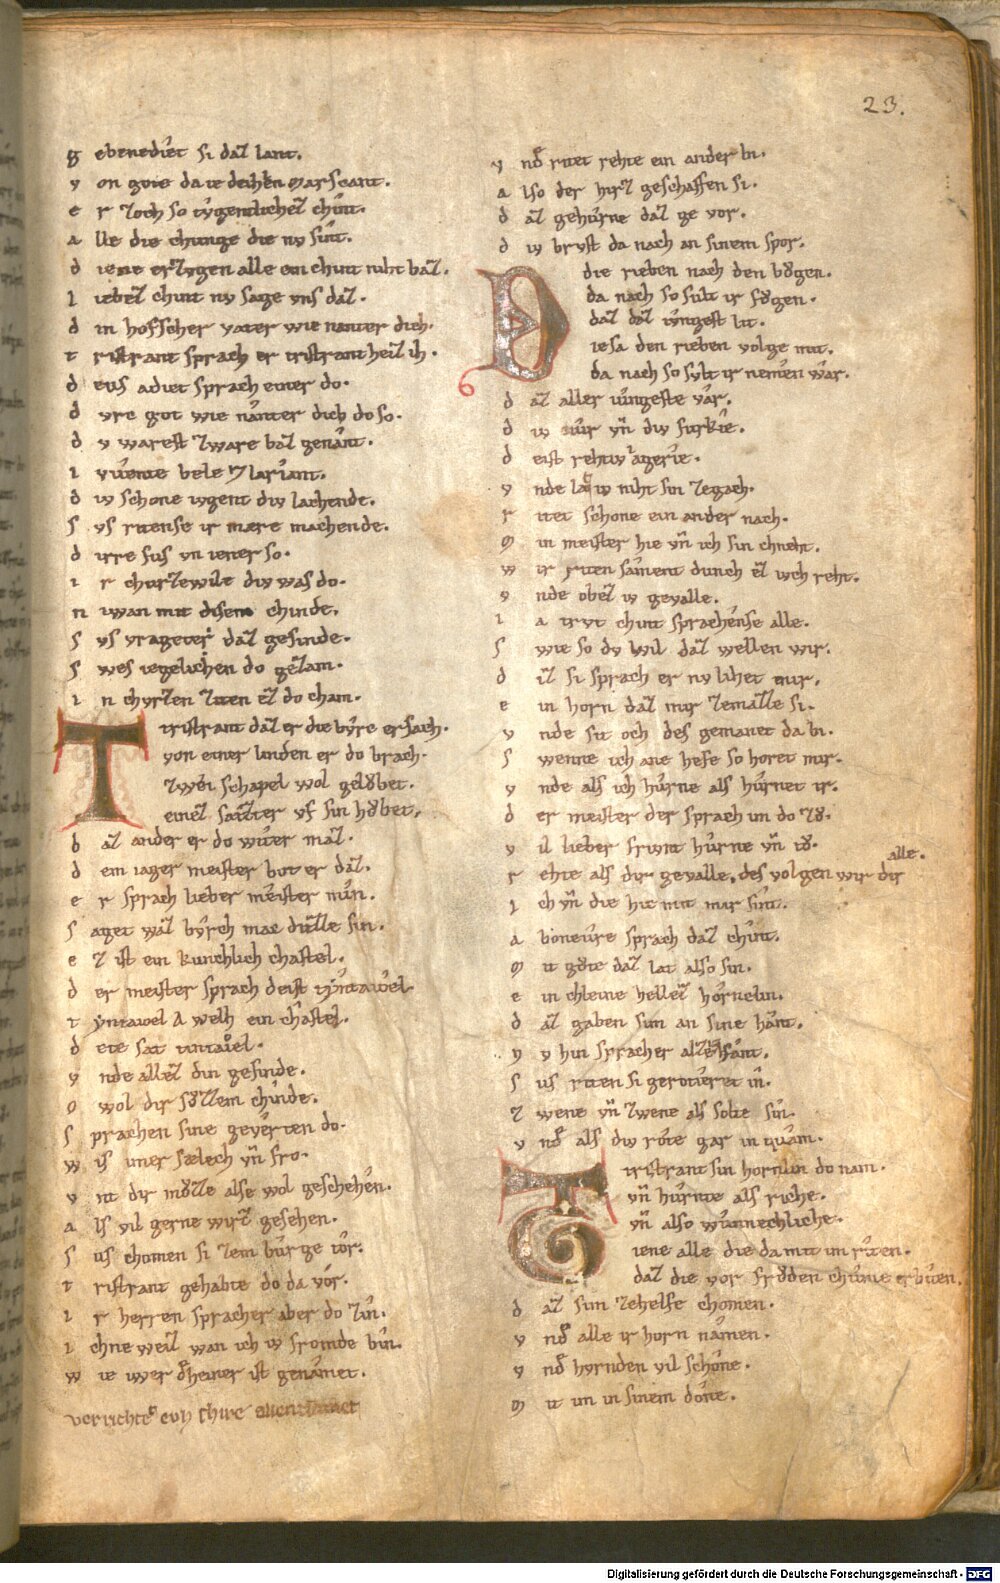 23.
g ebenediet si daz lant.
v on gote da ie dechein marscant.
e r zoch so tvgentlichez chint.
a lle die chunge die nv sint.
d iene erzvgen alle ein chint niht baz.
l iebez chint nv sage vns daz.
d in hofscher vater wie nanter dich.
t ristrant sprach er tristrant heiz ih.
d eus adiet sprach einer do.
d vre got wie nanter dich do so.
d v warest zware baz genant.
i vvente bele 7 lariant.
d iv schone ivgent div lachende.
s vs ritense ir mære machende.
d irre sus vn iener so.
i r churzewile div was do.
n iwan mit disem chinde.
s vs vrageter daz gesinde.
s wes iegelichen do gezam.
i n chvrzen ziten ez do cham.
T ristrant daz er die bvre ersach.
von einer linden er do brach.
zwei schapel wol gelovbet.
einez saztter vf sin hovbet.
d az ander er do witer maz.
d em iager meister bot er daz.
e r sprach lieber meister min.
s aget waz bvrch mac ditzze sin.
e z ist ein kunchlich chastel.
d er meister sprach deist tyntawel
t yntawel A welh ein chastel.
d ete sat tintavel.
v nde allez din gesinde.
o wol dir sozzem chinde.
s prachen sine geverten do.
w is imer sælech vn fro.
v nt dir mozze alse wol geschehen.
a ls vil gerne wirz gesehen.
s us chomen si zem burge tor.
t ristrant gehabte do da vor.
i r herren spracher aber do zin.
i chne weiz wan ich iv fromde bin.
w ie iwer dheiner ist genamet.
v nd ritet rehte ein ander bi.
a lso der hirz geschaffen si.
d az gehurne daz ge vor.
d iv brvst da nach an sinem spor.
D die rieben nach den bogen.
da nach so sult ir fogen.
daz daz iungest lit.
iesa den rieben volge mit.
da nach so svlt ir nemen war.
d az aller iungeste var.
d iv cur vn div furkie.
d eist rehtiv iagerie.
v nde lat iv niht sin zegach.
r itet schone ein ander nach.
m in meister hie vn ich sin chneht.
w ir riten sament dunch ez iuch reht.
v nde obez iv gevalle.
i a trvt chint sprachense alle.
s wie so dv wil daz wellen wir.
d iz si sprach er nv lihet mir.
e in horn daz mir zemazze si.
v nde sit och des gemanet da bi.
s wenne ich ane hefe so horet mir.
v nde als ich hurne als hurnet ir.
d er meister der sprach im do zo.
v il lieber friunt hurne vn to.
r ehte als dir gevalle. des volgen wir dir alle.
i ch vn die hie mit mir sint.
a boneure sprach daz chint.
m it gote daz lat also sin.
e in chleine hellez hornelin.
d az gaben sim an sine hant.
n v hin spracher allezsant.
s us riten si gerotieret in.
z wene vn zwene als solte sin.
v nd als div rote gar in quam.
T ristrant sin hornlin do nam.
vn hurnte als riche.
vn also wunnechliche.
iene alle die da mit im riten.
daz die vor froden chume erbiten.
d az sim zehelfe chomen.
v nd alle ir horn namen.
v nd hvrnden vil schone.
m it im in sinem done.
Digitalisierung gefördert durch die Deutsche Forschungsgemeinschaft - DFG